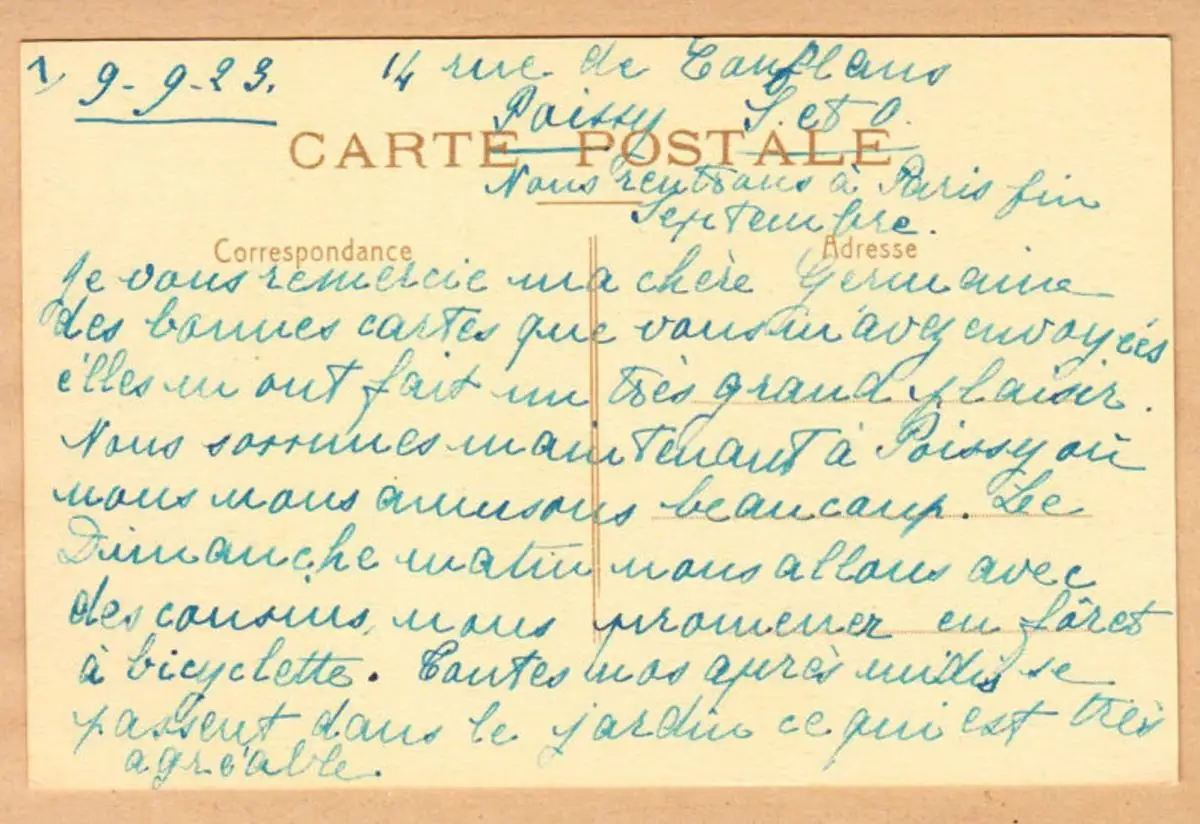 1, 9-9-23. 14 rue de Conflans
Poissy S. et O.
CARTE POSTALE
Nous rentrons à Paris fin
Septembre.
Correspondance Adresse
Je vous remercie ma chère Germaine
des bonnes cartes que vous m'avez envoyées
elles m'ont fait un très grand plaisir.
Nous sommes maintenant à Poissy où
nous nous amusons beaucoup. Le
Dimanche matin nous allons avec
des cousins, nous promener en fôret
à bicyclette. Toutes nos après midis se
passent dans le jardin ce qui est très
agréable.